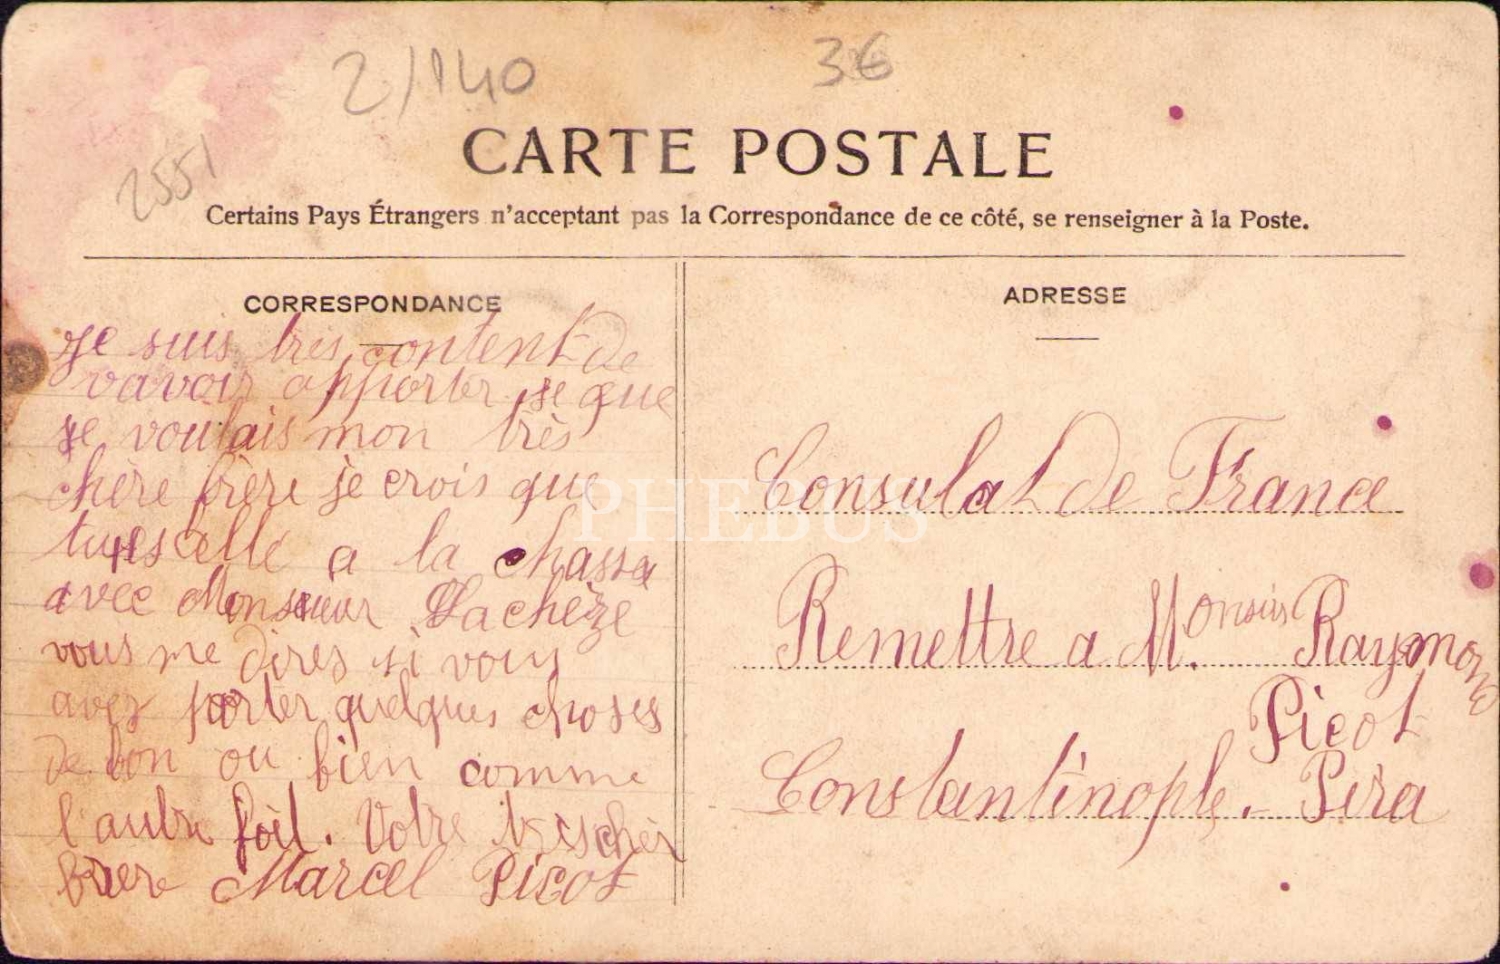 2/140
3€
2551
CARTE POSTALE
Certains Pays Étrangers n'acceptant pas la Correspondance de ce côté, se renseigner à la Poste.
CORRESPONDANCE
Je suis très content de
vavoir apporter se que
je voulais mon très
chère frère je crois que
a la chasse
avec Monsieur Lachèze
vous me dires si vous
avez porter quelques choses
de bon ou bien comme
l'autre foit. Votre trescher
frere Marcel Picot
ADRESSE
Consulat de France
Remettre a Monsieur Raymond
Picot
Constantinople. - Péra
PHEBUS